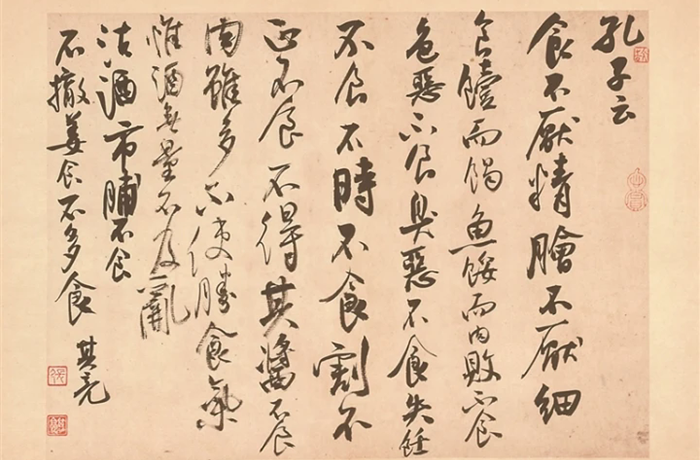 孔子云
食不厭精膾不厭細
食饐而餲魚餒而肉敗不食
色惡不食臭惡不食失飪
不食不時不食割不
正不食不得其醬不食
肉雖多不使勝食氣
惟酒無量不及亂
沽酒市脯不食
不撤薑食不多食 其亮